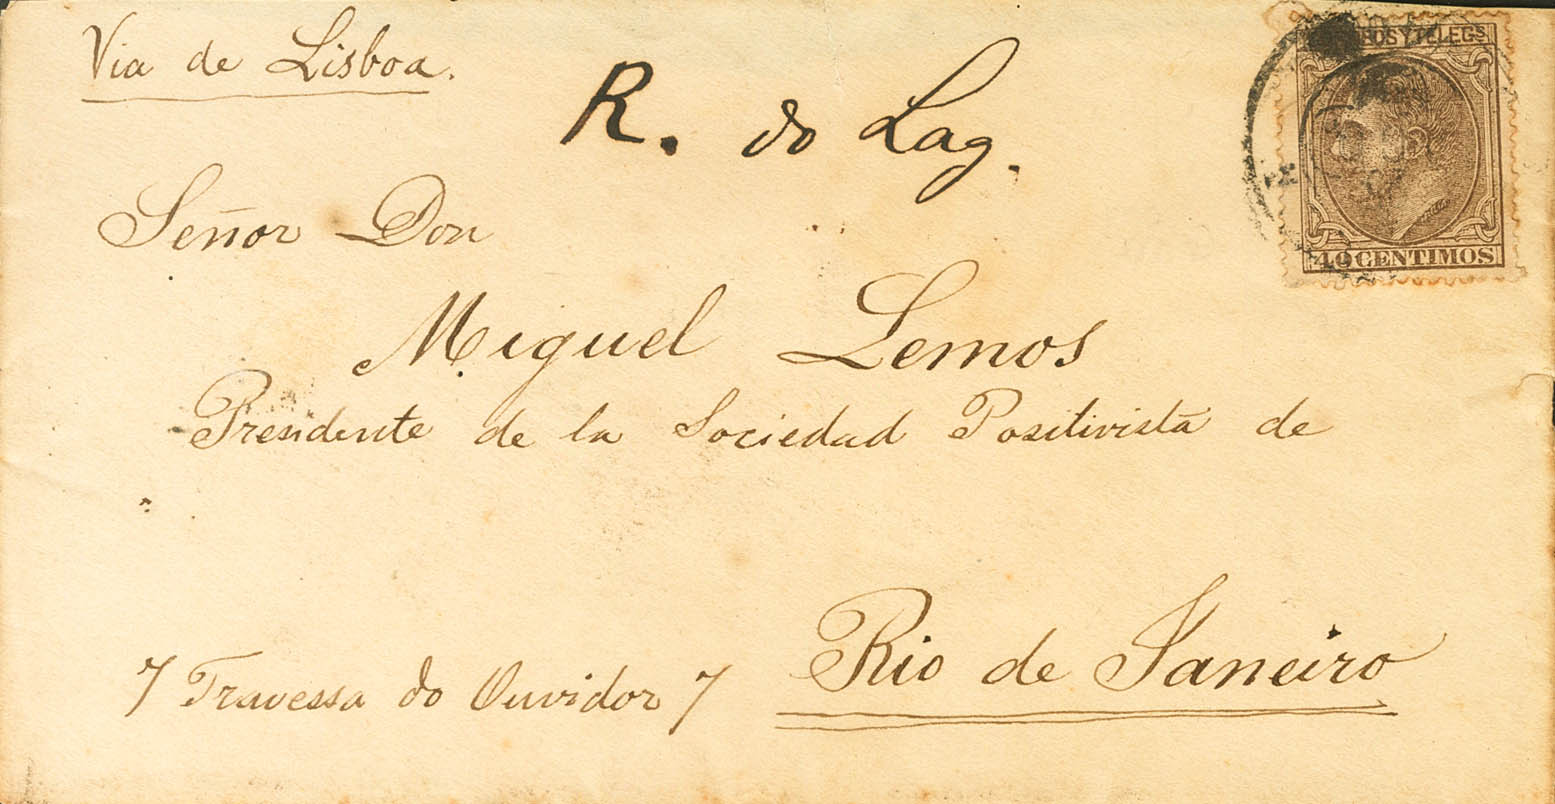 Via de Lisboa.
R. do Lag.
Señor Don
Miguel Lemos
Presidente de la Sociedad Positivista de
7 Travessa do Ouvidor 7
Rio de Janeiro
Y TELEGS
40 CENTIMOS